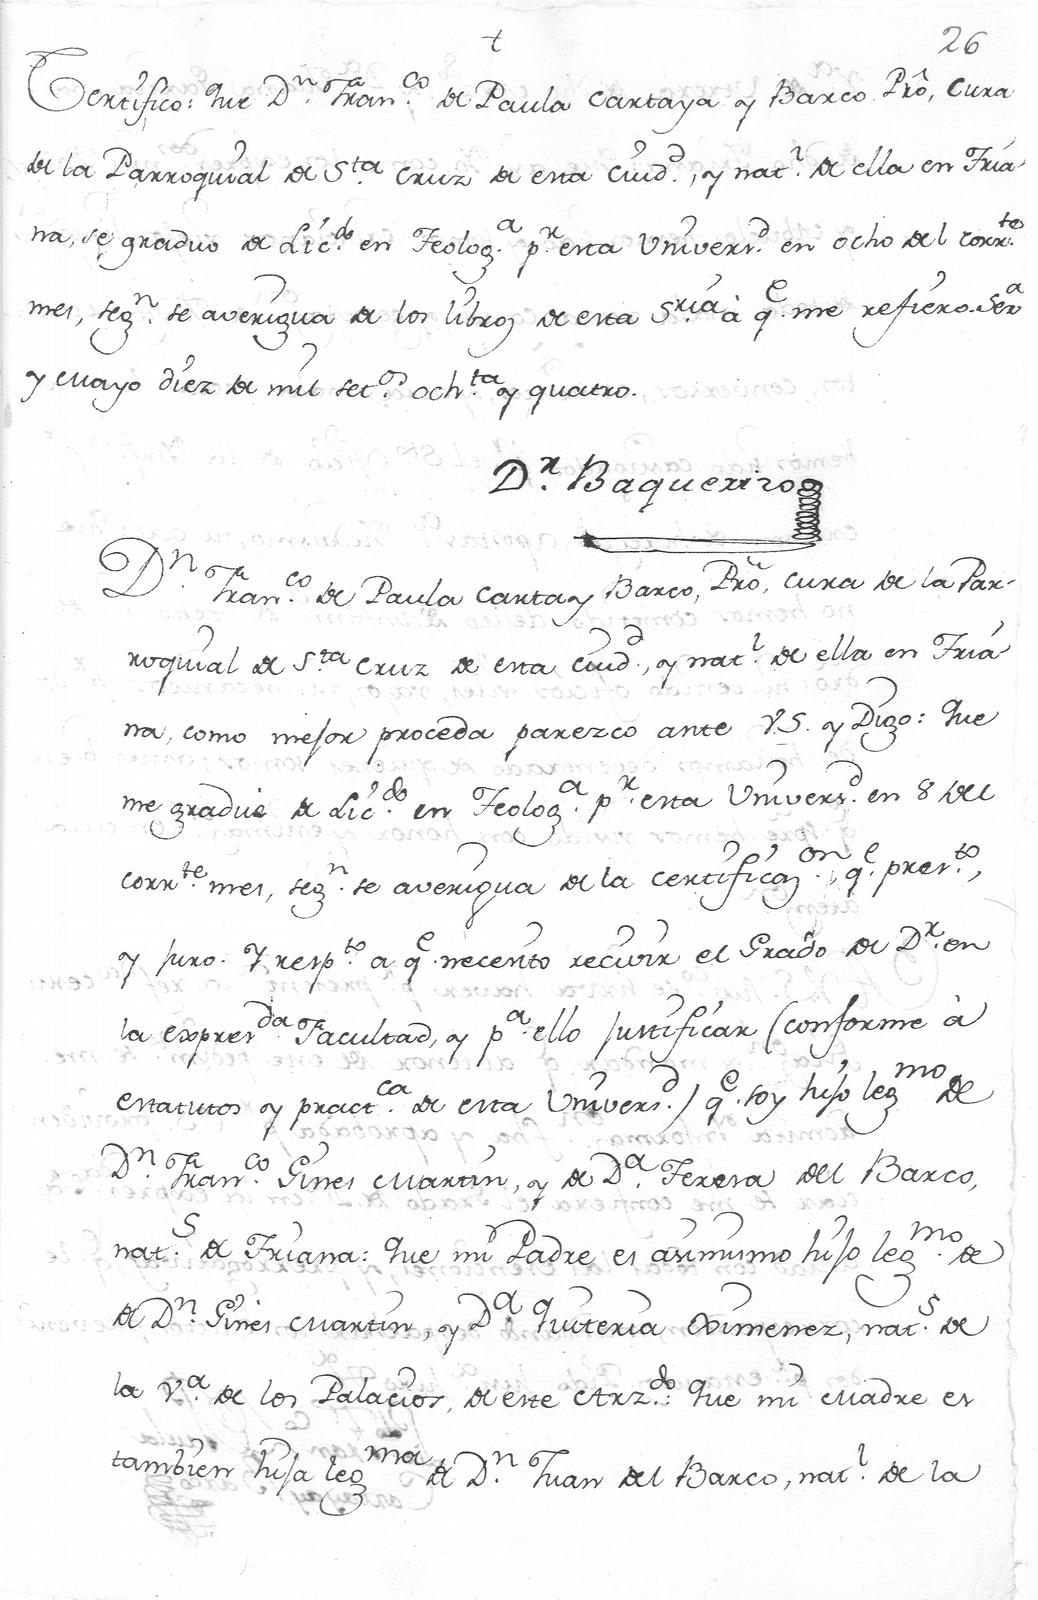 t
26
Certifico: que Dn. Franco. de Paula Cartaya y Barco Pro, Cura
de la Parroquial de Sta Cruz de esta Ciud., y natl. de ella en Tria-
na, se graduo de Licdo. en Teologa. pr. esta Universd. en ocho del corrte.
mes, segn. se averigua de los libros de esta Sria à qe. me refiero. Sera
y Mayo diez de mil setos. ochta y quatro.
Dr. Baquerizo
Dn Franco. de Paula Cartay Barco, Pro, Cura de la Par-
roquial de Sta Cruz de esta Ciud., y natl. de ella en Tria-
na, como mejor proceda parezco ante V.S. y Digo: que
me gradué de Licdo. en Teologa. pr. esta Universd. en 8 del
corrte. mes, segn. se averigua de la certificazon., qe. presto,
y juro. Y respto. a qe. necesito recivir el Grado de Dr. en
la expresda Facultad, y pa. ello justificar (conforme à
estatutos y practca. de esta Universd.) qe. soy hijo legmo de
Dn Franco. Gines Martin, y de Da. Teresa del Barco,
nats. de Triana: que mi Padre es asimismo hijo legmo. de
de Dn. Gines Martin, y Da. Quiteria Ximenez, nats. de
la Va. de los Palacios, de este Arzdo.: que mi Madre es
tambien hija legma de Dn Juan del Barco, natl. de la